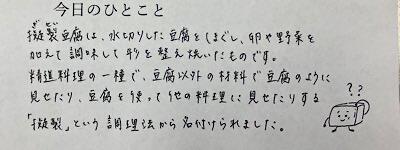 今日のひとこと
ぎせい
擬製豆腐は、水切りした豆腐をほぐし、卵や野菜を
加えて調味して形を整え焼いたものです。
精進料理の一種で、豆腐以外の材料で豆腐のように
見せたり、豆腐を使って他の料理に見せたりする
「擬製」という調理法から名付けられました。
??